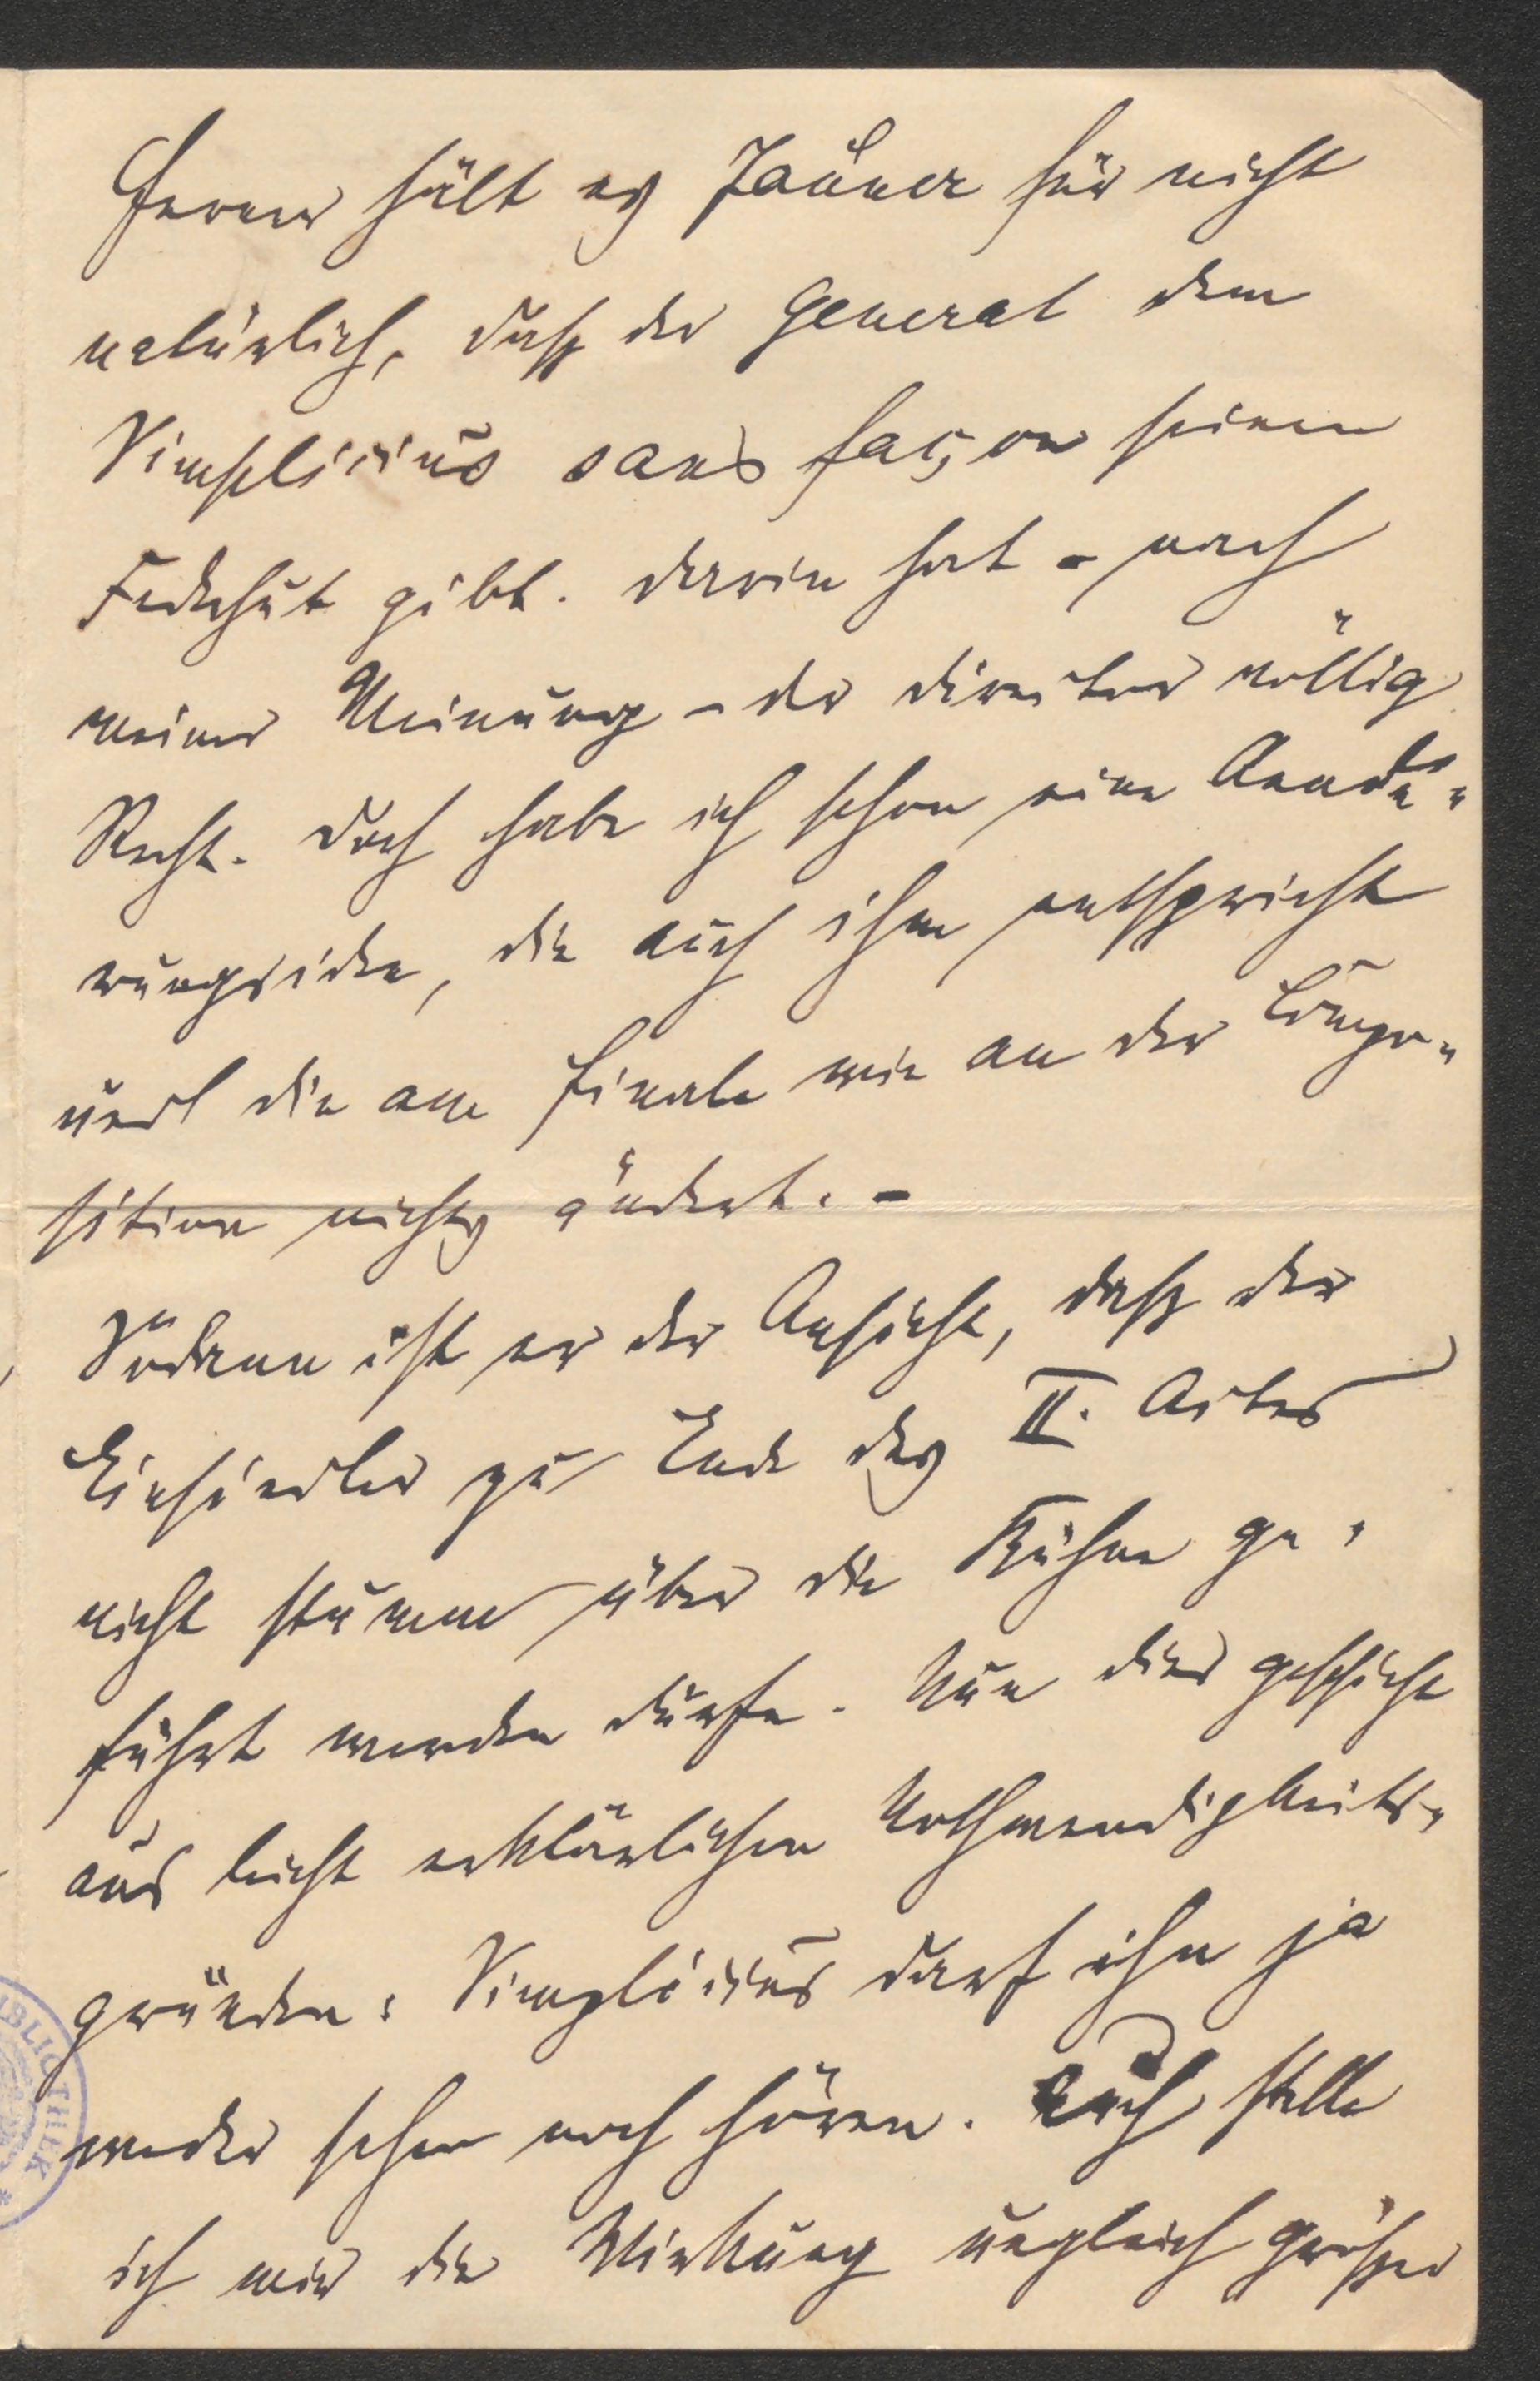 Ferner hält es Jauner für nicht
natürlich, daß der General dem
Simplicius sans façon seinen
Federhut gibt. Darin hat - nach
meiner Meinung - der Director völlig
Recht. Doch habe ich schon eine Aende-
rungsidee, die auch ihm entspricht
und die am Finale wie an der Compo-
sition nichts ändert. -
Sodann ist er der Ansicht, daß der
Einsiedler zu Ende des II. Actes
nicht stumm über die Bühne ge-
führt werden dürfe. Nun dies geschieht
aus leicht erklärlichen Nothwendigkeits-
gründen: Simplicius darf ihn ja
weder sehen noch hören. Auch stelle
ich mir die Wirkung ungleich größer
BLIOTHEK